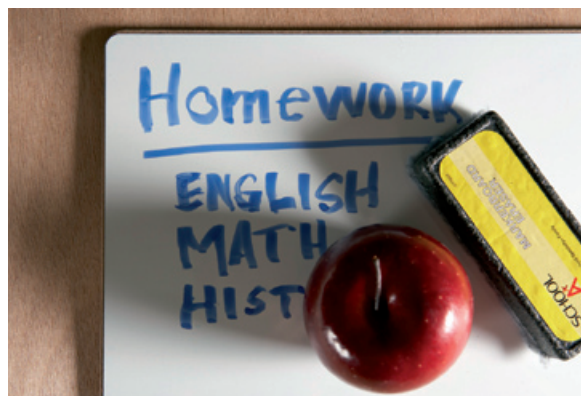 Homework
ENGLISH
MATH
HIST
SCHOOL
A+